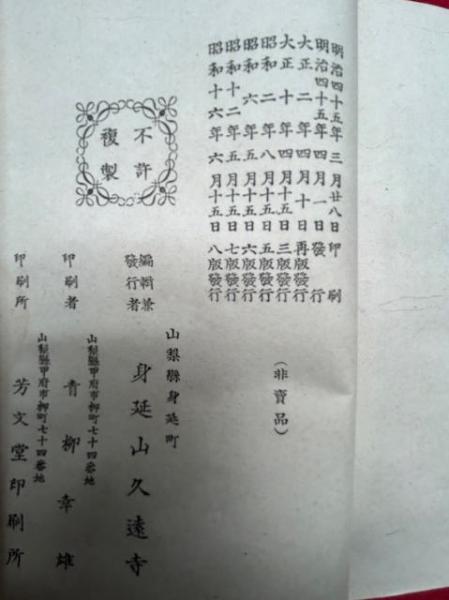 明治四十五年三月廿八日印刷
明治四十五年四月一日發行
大正二年四月十日再版發行
大正十年四月十五日三版發行
昭和二年八月十五日五版發行
昭和六年五月十五日六版發行
昭和十二年五月十五日七版發行
昭和十六年六月十五日八版發行
(非賣品)
不許
複製
山梨縣身延町
編輯兼
發行者
身延山久遠寺
山梨縣甲府市柳町七十四番地
印刷者
青柳幸雄
山梨縣甲府市柳町七十四番地
印刷所
芳文堂印刷所